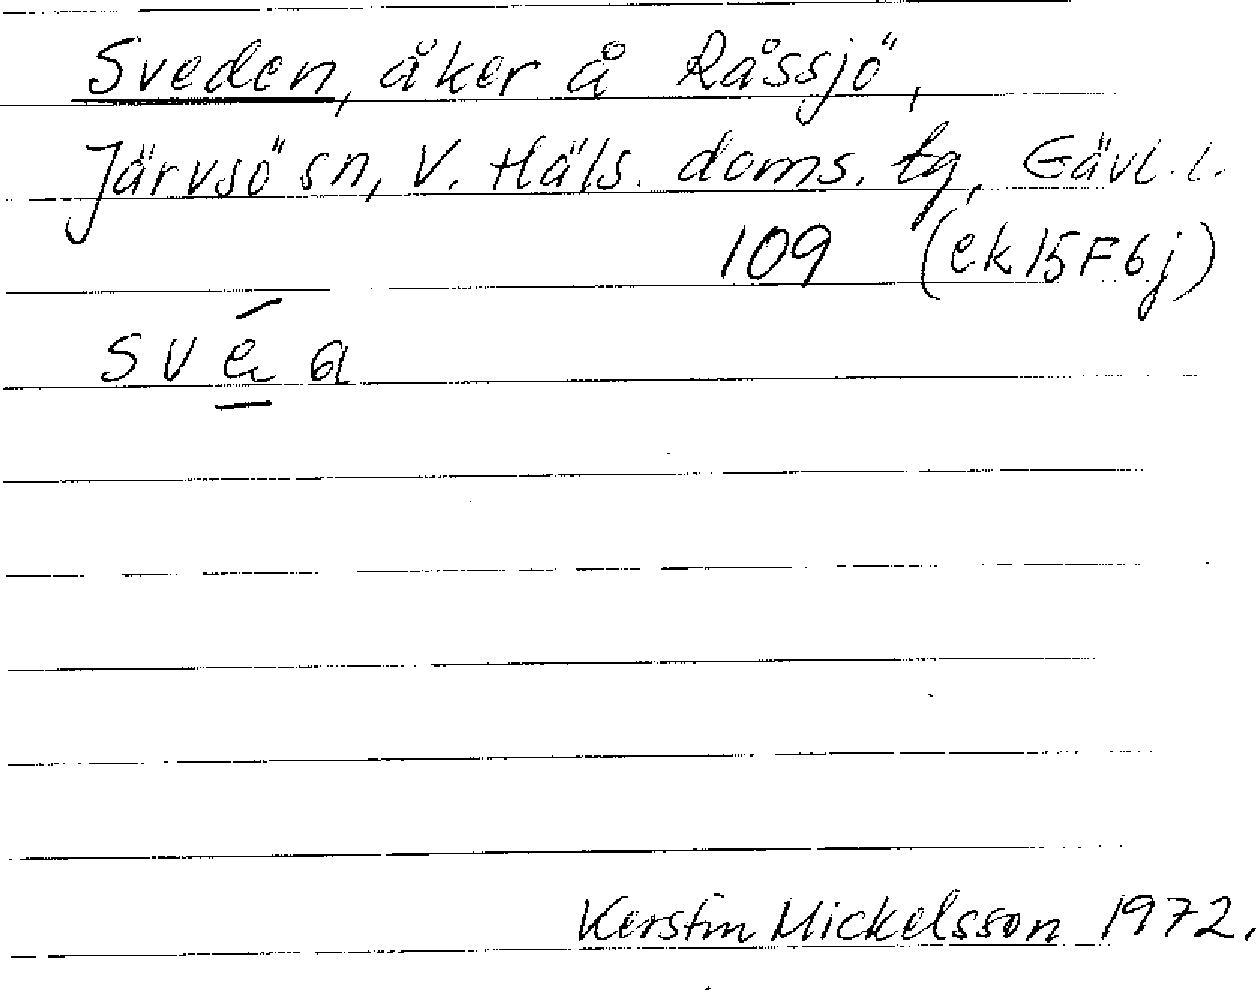 Sveden, åker å Råssjö,
Järvsö sn, V. Häls. doms. tg, Gävl. l.
109 (ek 15F6j)
své̱a
Kerstin Mickelsson 1972.